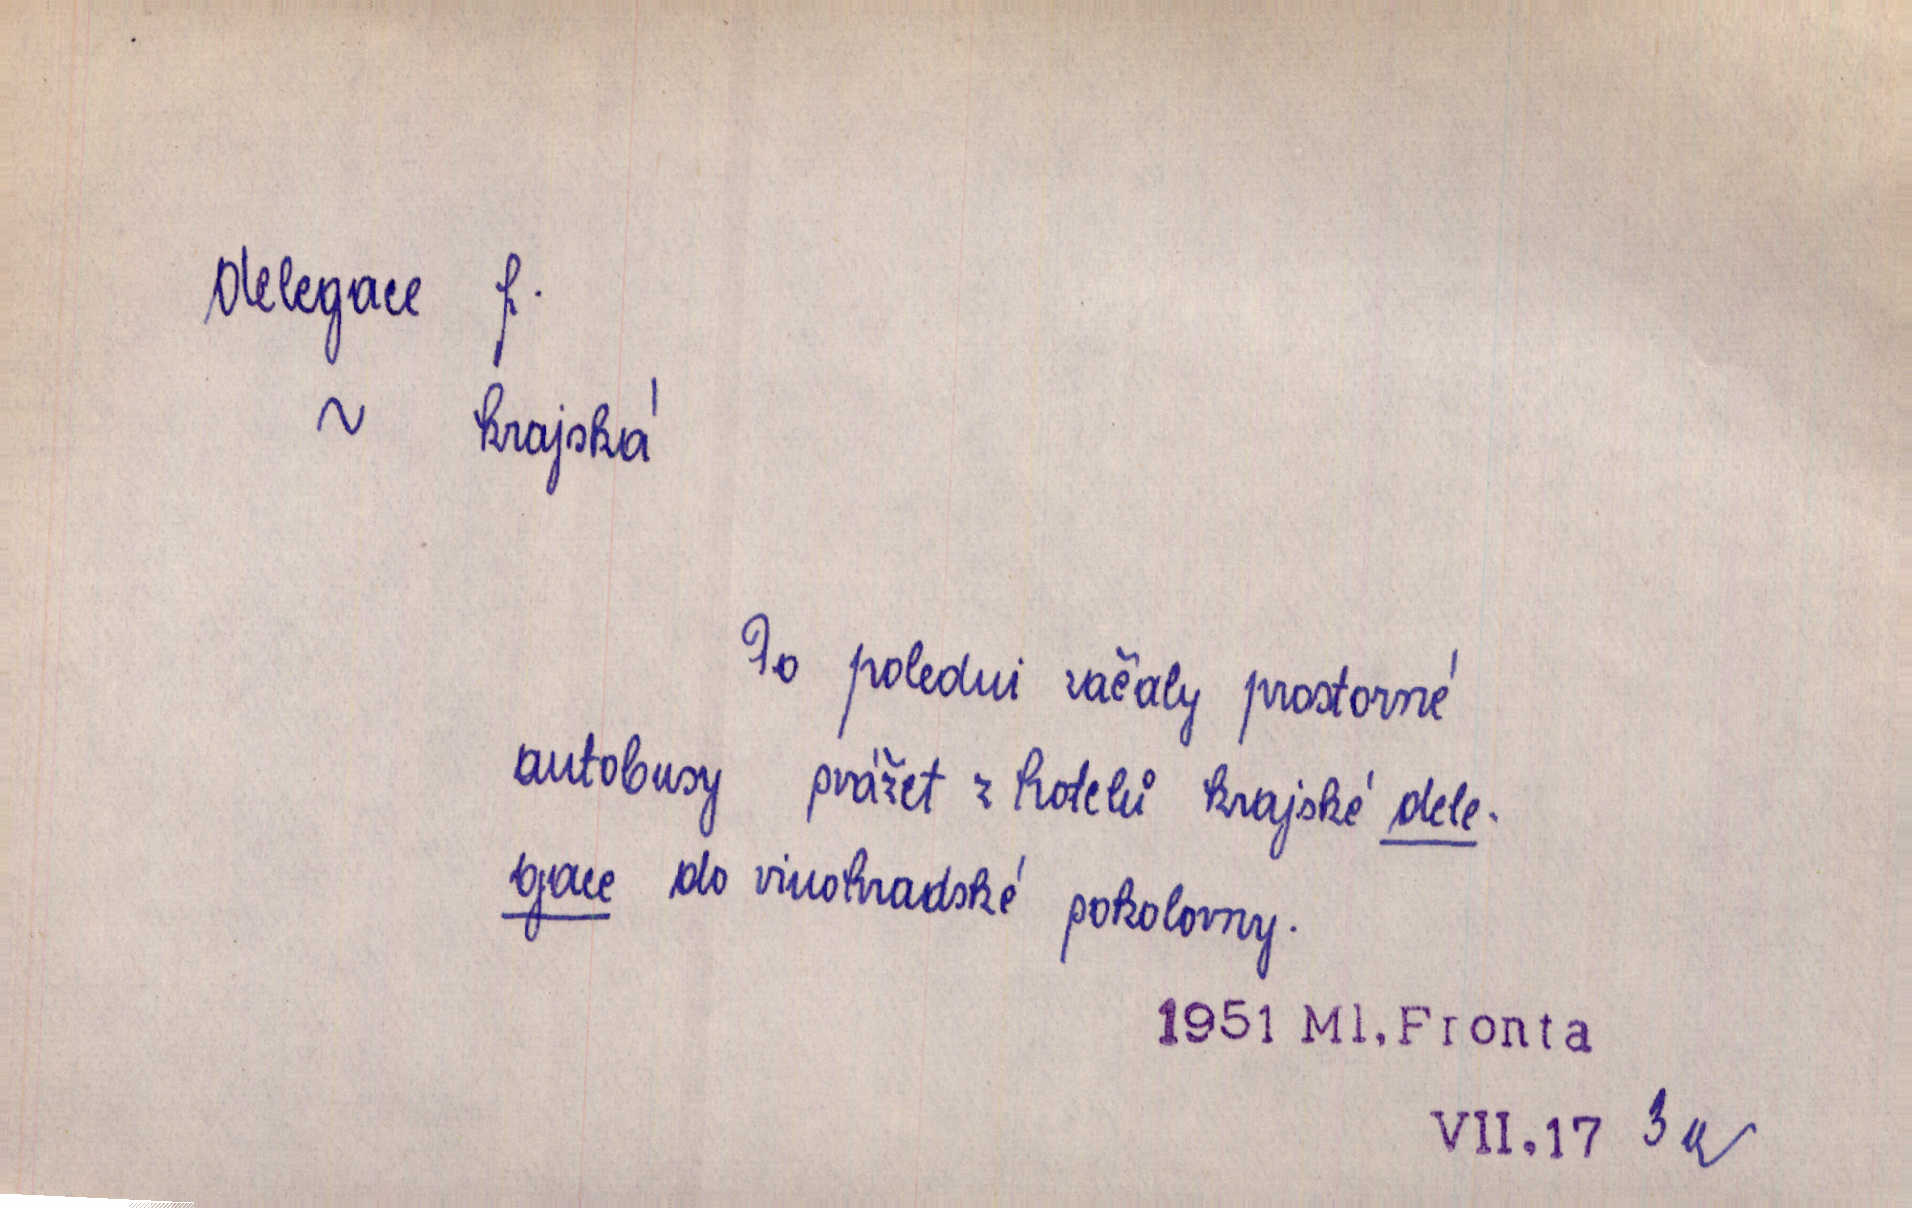 delegace f.
~ krajská
Po poledni začaly prostorné
autobusy svážet z hotelů krajské dele-
gace do vinohradské sokolovny.
1951 Ml.Fronta
VII.17 3